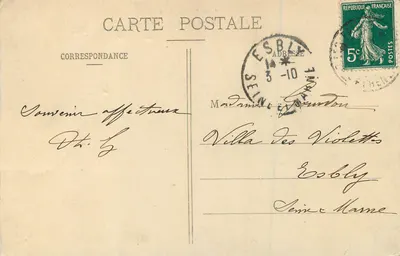 CARTE POSTALE
CORRESPONDANCE
ADRESSE
RÉPUBLIQUE FRANÇAISE
5c
POSTES
ESBLY
14 *
3 -10
SEINE ET MARNE
Souvenir affectueux
Madame Gourdon
Villa des Violettes
Esbly
Seine & Marne